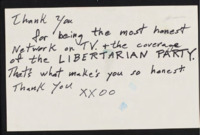 Thank you
for being the most honest
Network on T.V. & the coverage
of the LIBERTARIAN PARTY.
That's what make's you so honest
Thank You
XXOO